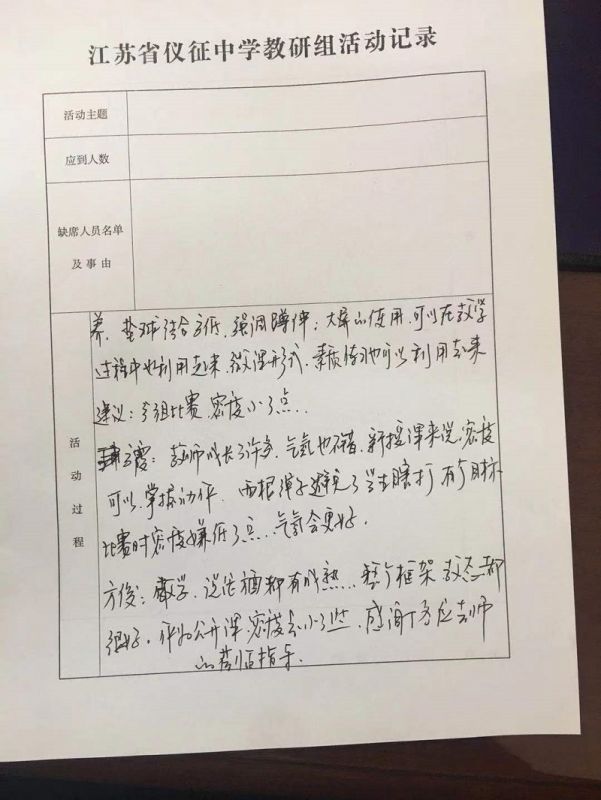 江苏省仪征中学教研组活动记录
活动主题
应到人数
缺席人员名单
及事由
活动过程
养,垫球结合高低,强调蹲伸;大屏的使用,可以在教学
过程中也利用起来,形式,素质练习也可以利用起来
建议:分组比赛,密度小了点..
教师成长了许多,气氛也不错,新授课来说,密度
可以,掌握动作,两根弹子避免了学生瞎打,有个目标
比赛时密度嫌低了点..气氛会更好.
方俊:教学,说法都有成熟..整个框架教态都
很好,作为公开课,密度会小了些,感谢丁老师
的莅临指导.